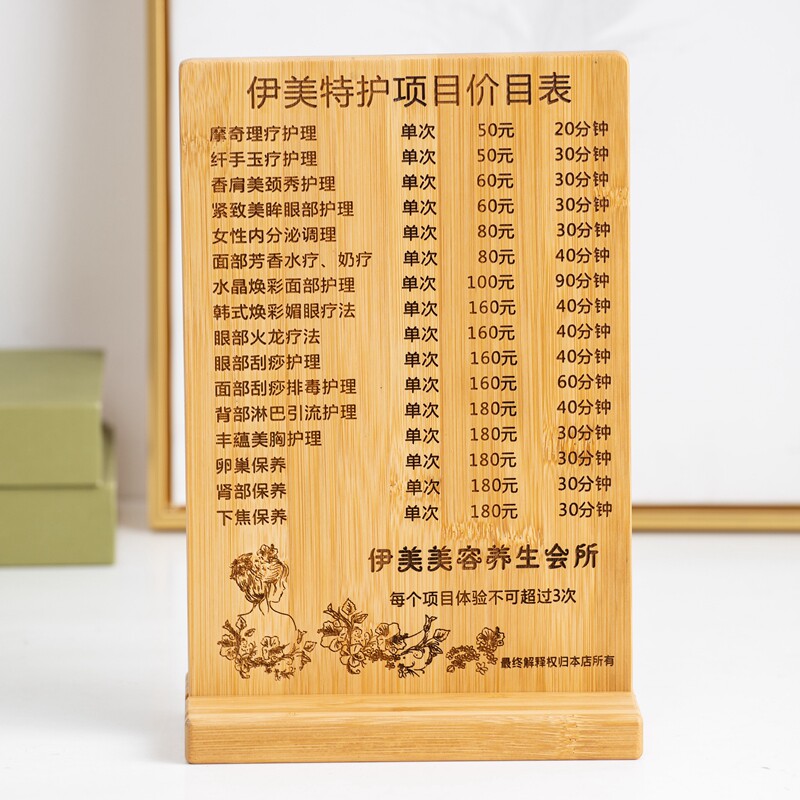 伊美特护项目价目表
摩奇理疗护理 单次 50元 20分钟
纤手玉疗护理 单次 50元 30分钟
香肩美颈秀护理 单次 60元 30分钟
紧致美眸眼部护理 单次 60元 30分钟
女性内分泌调理 单次 80元 30分钟
面部芳香水疗、奶疗 单次 80元 40分钟
水晶焕彩面部护理 单次 100元 90分钟
韩式焕彩媚眼疗法 单次 160元 40分钟
眼部火龙疗法 单次 160元 40分钟
眼部刮痧护理 单次 160元 40分钟
面部刮痧排毒护理 单次 160元 60分钟
背部淋巴引流护理 单次 180元 40分钟
丰蕴美胸护理 单次 180元 30分钟
卵巢保养 单次 180元 30分钟
肾部保养 单次 180元 30分钟
下焦保养 单次 180元 30分钟
伊美美容养生会所
每个项目体验不可超过3次
最终解释权归本店所有